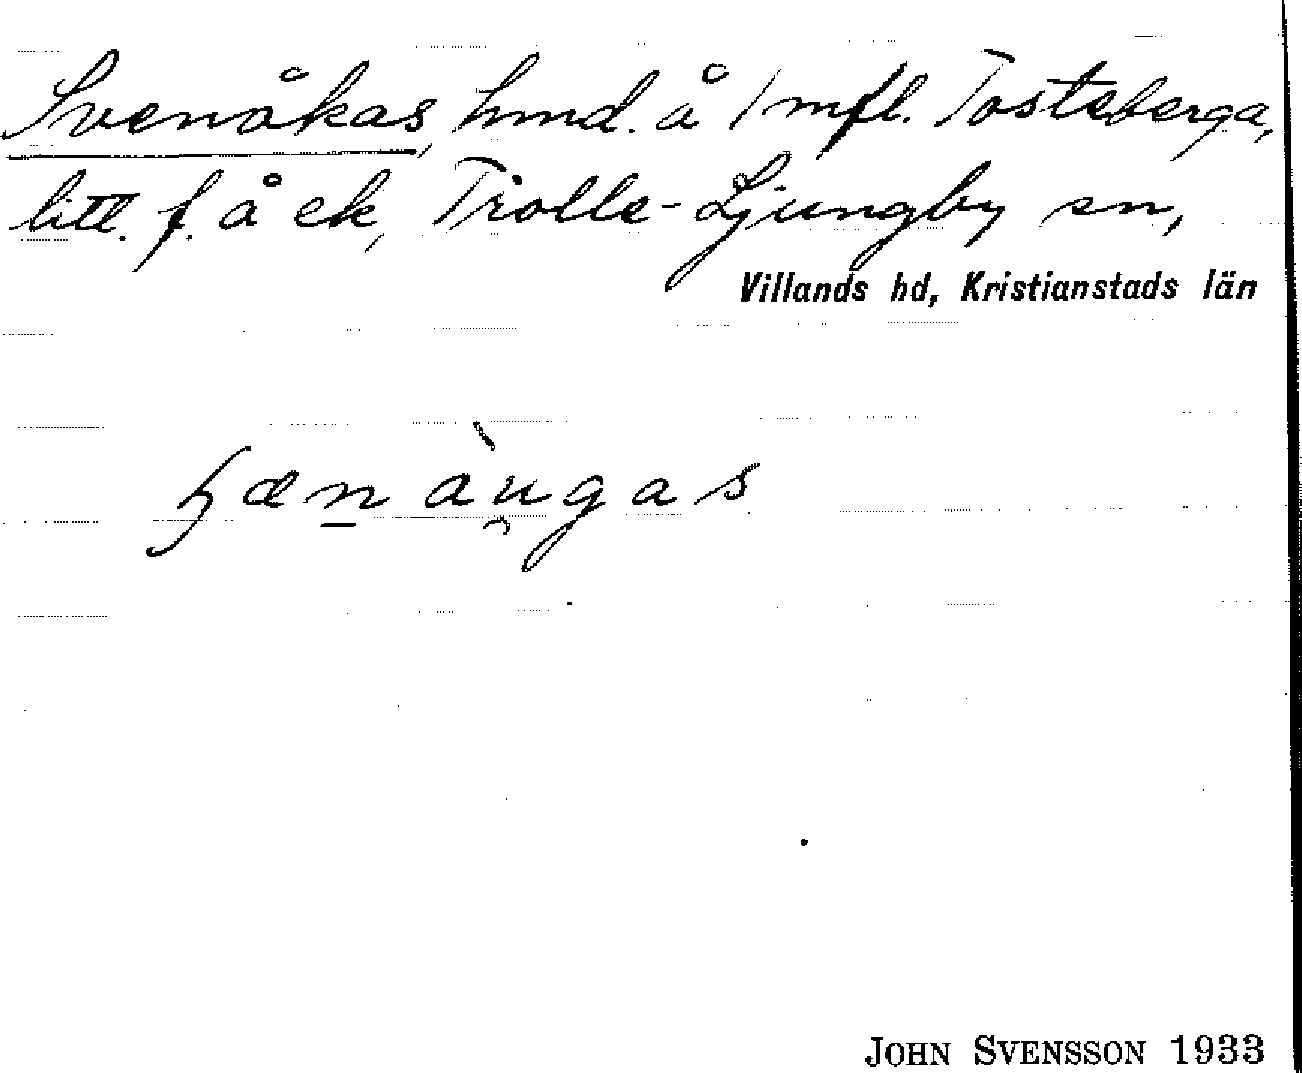 Svenåkas, hmd. å 1 mfl. Tosteberga,
litt. f. å ek, Trolle-Ljungby sn,
Villands hd, Kristianstads län
JOHN SVENSSON 1933